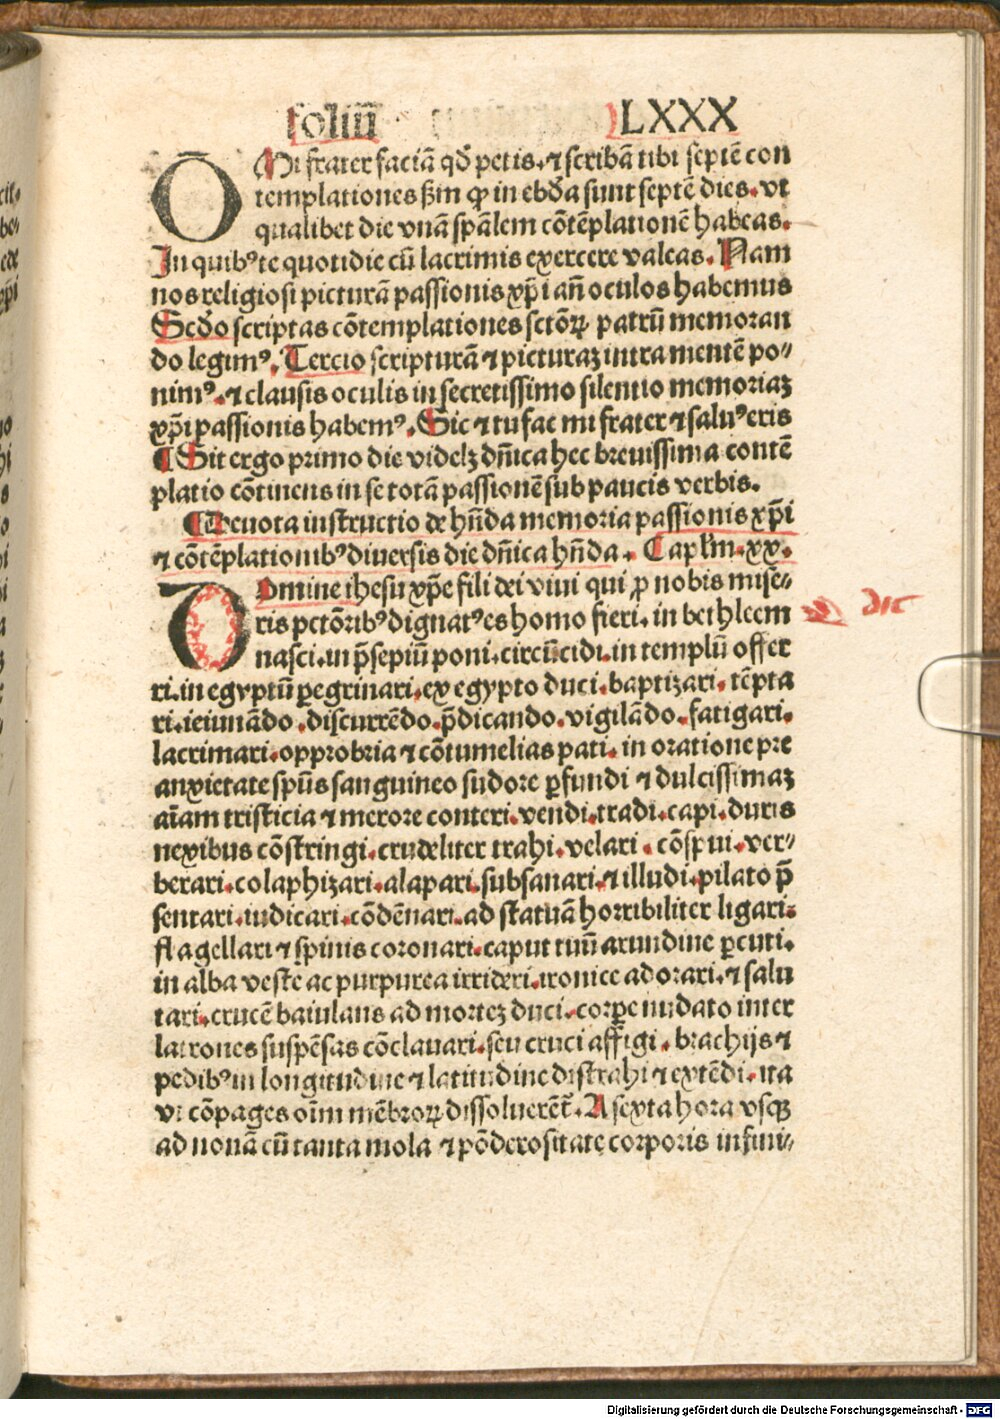 foliū LXXX
O Mi frater faciā qd̄ petis. ⁊ scribā tibi septē con
templationes s̄m ꝙ in ebd̄a sunt septē dies. vt
qualibet die vnā sp̄alem cōtēplationē habeas.
In quibꝰ te quotidie cū lacrimis exercere valeas. Nam
nos religiosi picturā passionis xp̄i añ oculos habemus
Scd̄o scriptas cōtemplationes sctōꝝ patrū memoran
do legimꝰ. Tercio scripturā ⁊ picturaꝫ intra mentē po⸗
nimꝰ. ⁊ clausis oculis in secretissimo silentio memoriaꝫ
xp̄i passionis habemꝰ. Sic ⁊ tu fac mi frater ⁊ saluꝰ eris
¶ Sit ergo primo die videlꝫ dn̄ica hec breuissima contē
platio cōtinens in se totā passionē sub paucis verbis.
¶ Deuota instructio de hn̄da memoria passionis xp̄i
⁊ cōtēplationibꝰ diuersis die dn̄ica hn̄da. Caplm̄.xx.
Domine ihesu xp̄e fili dei viui qui ꝓ nobis mise⸗
ris pctōribꝰ dignatꝰ es homo fieri. in bethleem
nasci. in p̄sepiū poni. circūcidi. in templū offer
ri. in egyptū ꝑegrinari. ex egypto duci. baptizari. tēpta
ri. ieiunādo. discurrēdo. p̄dicando. vigilādo. fatigari.
lacrimari. opprobria ⁊ cōtumelias pati. in oratione pre
anxietate sp̄us sanguineo sudore ꝑfundi ⁊ dulcissimaꝫ
aīam tristicia ⁊ merore conteri. vendi. tradi. capi. duris
nexibus cōstringi. crudeliter trahi. velari. cōspui. ver⸗
berari. colaphizari. alapari. subsanari. ⁊ illudi. pilato p̄
sentari. iudicari. cōdēnari. ad statuā horribiliter ligari.
flagellari ⁊ spinis coronari. caput tuū arundine ꝑcuti.
in alba veste ac purpurea irrideri. ironice adorari. ⁊ salu
tari. crucē baiulans ad morteꝫ duci. corꝑe nudato inter
latrones suspēsas cōclauari. seu cruci affigi. brachijs ⁊
pedibꝰ in longitudine ⁊ latitudine distrahi ⁊ extēdi. ita
vt cōpages oīm mēbroꝝ dissoluerēt̄. A sexta hora vsqꝫ
ad nonā cū tanta mola ⁊ pōderositate corporis infini⸗
Digitalisierung gefördert durch die Deutsche Forschungsgemeinschaft - DFG